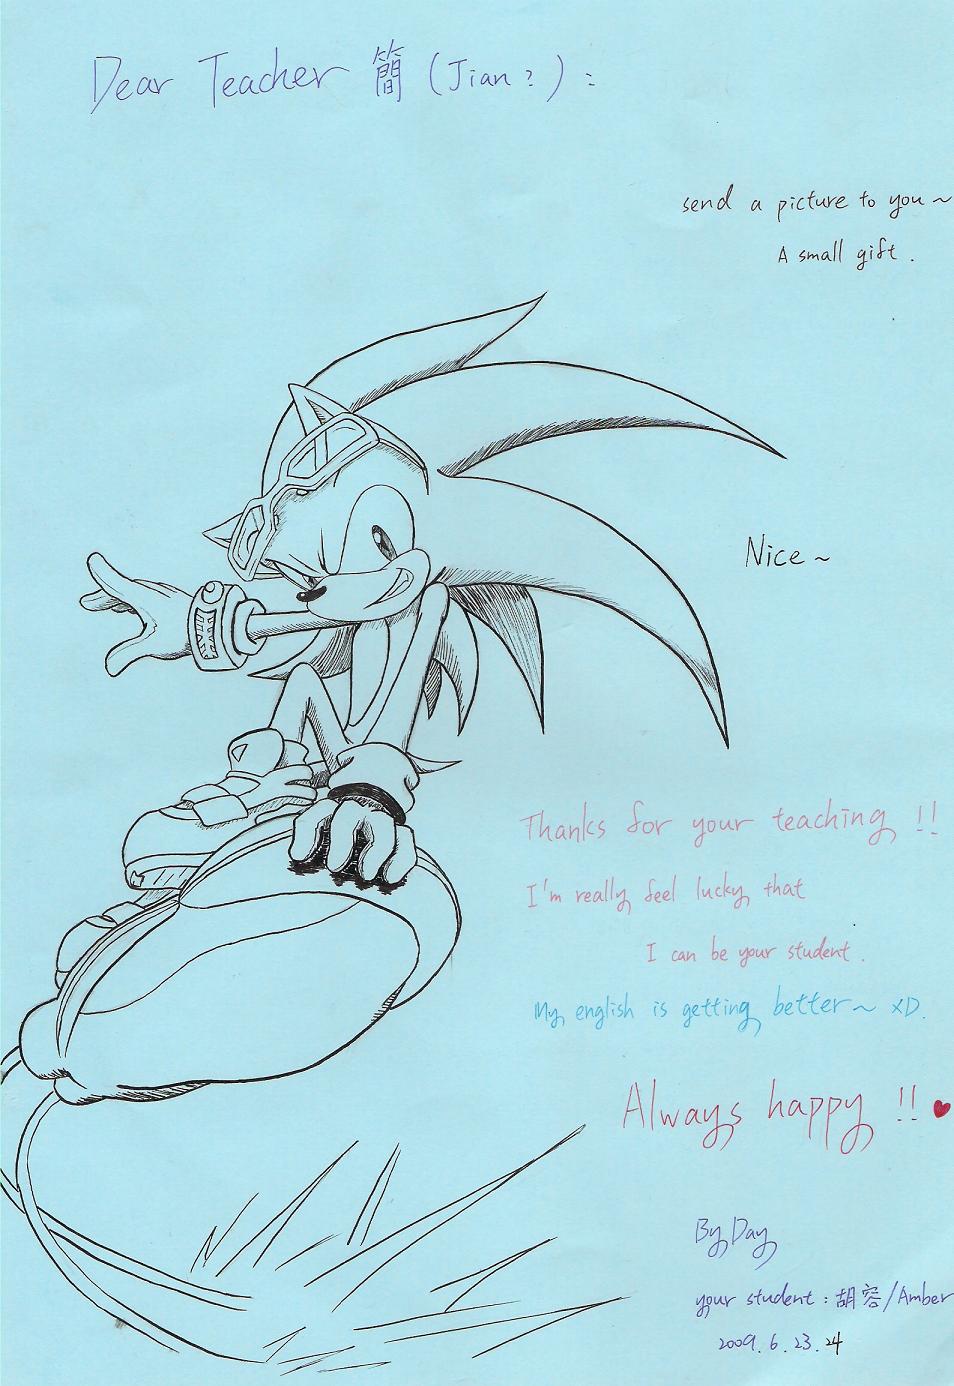 Dear Teacher 簡 (Jian?) :
send a picture to you~
A small gift.
Nice~
Thanks for your teaching !!
I'm really feel lucky that
I can be your student.
My english is getting better~ XD.
Always happy !!
By Day
your student : 胡容/Amber
2009.6.23.24